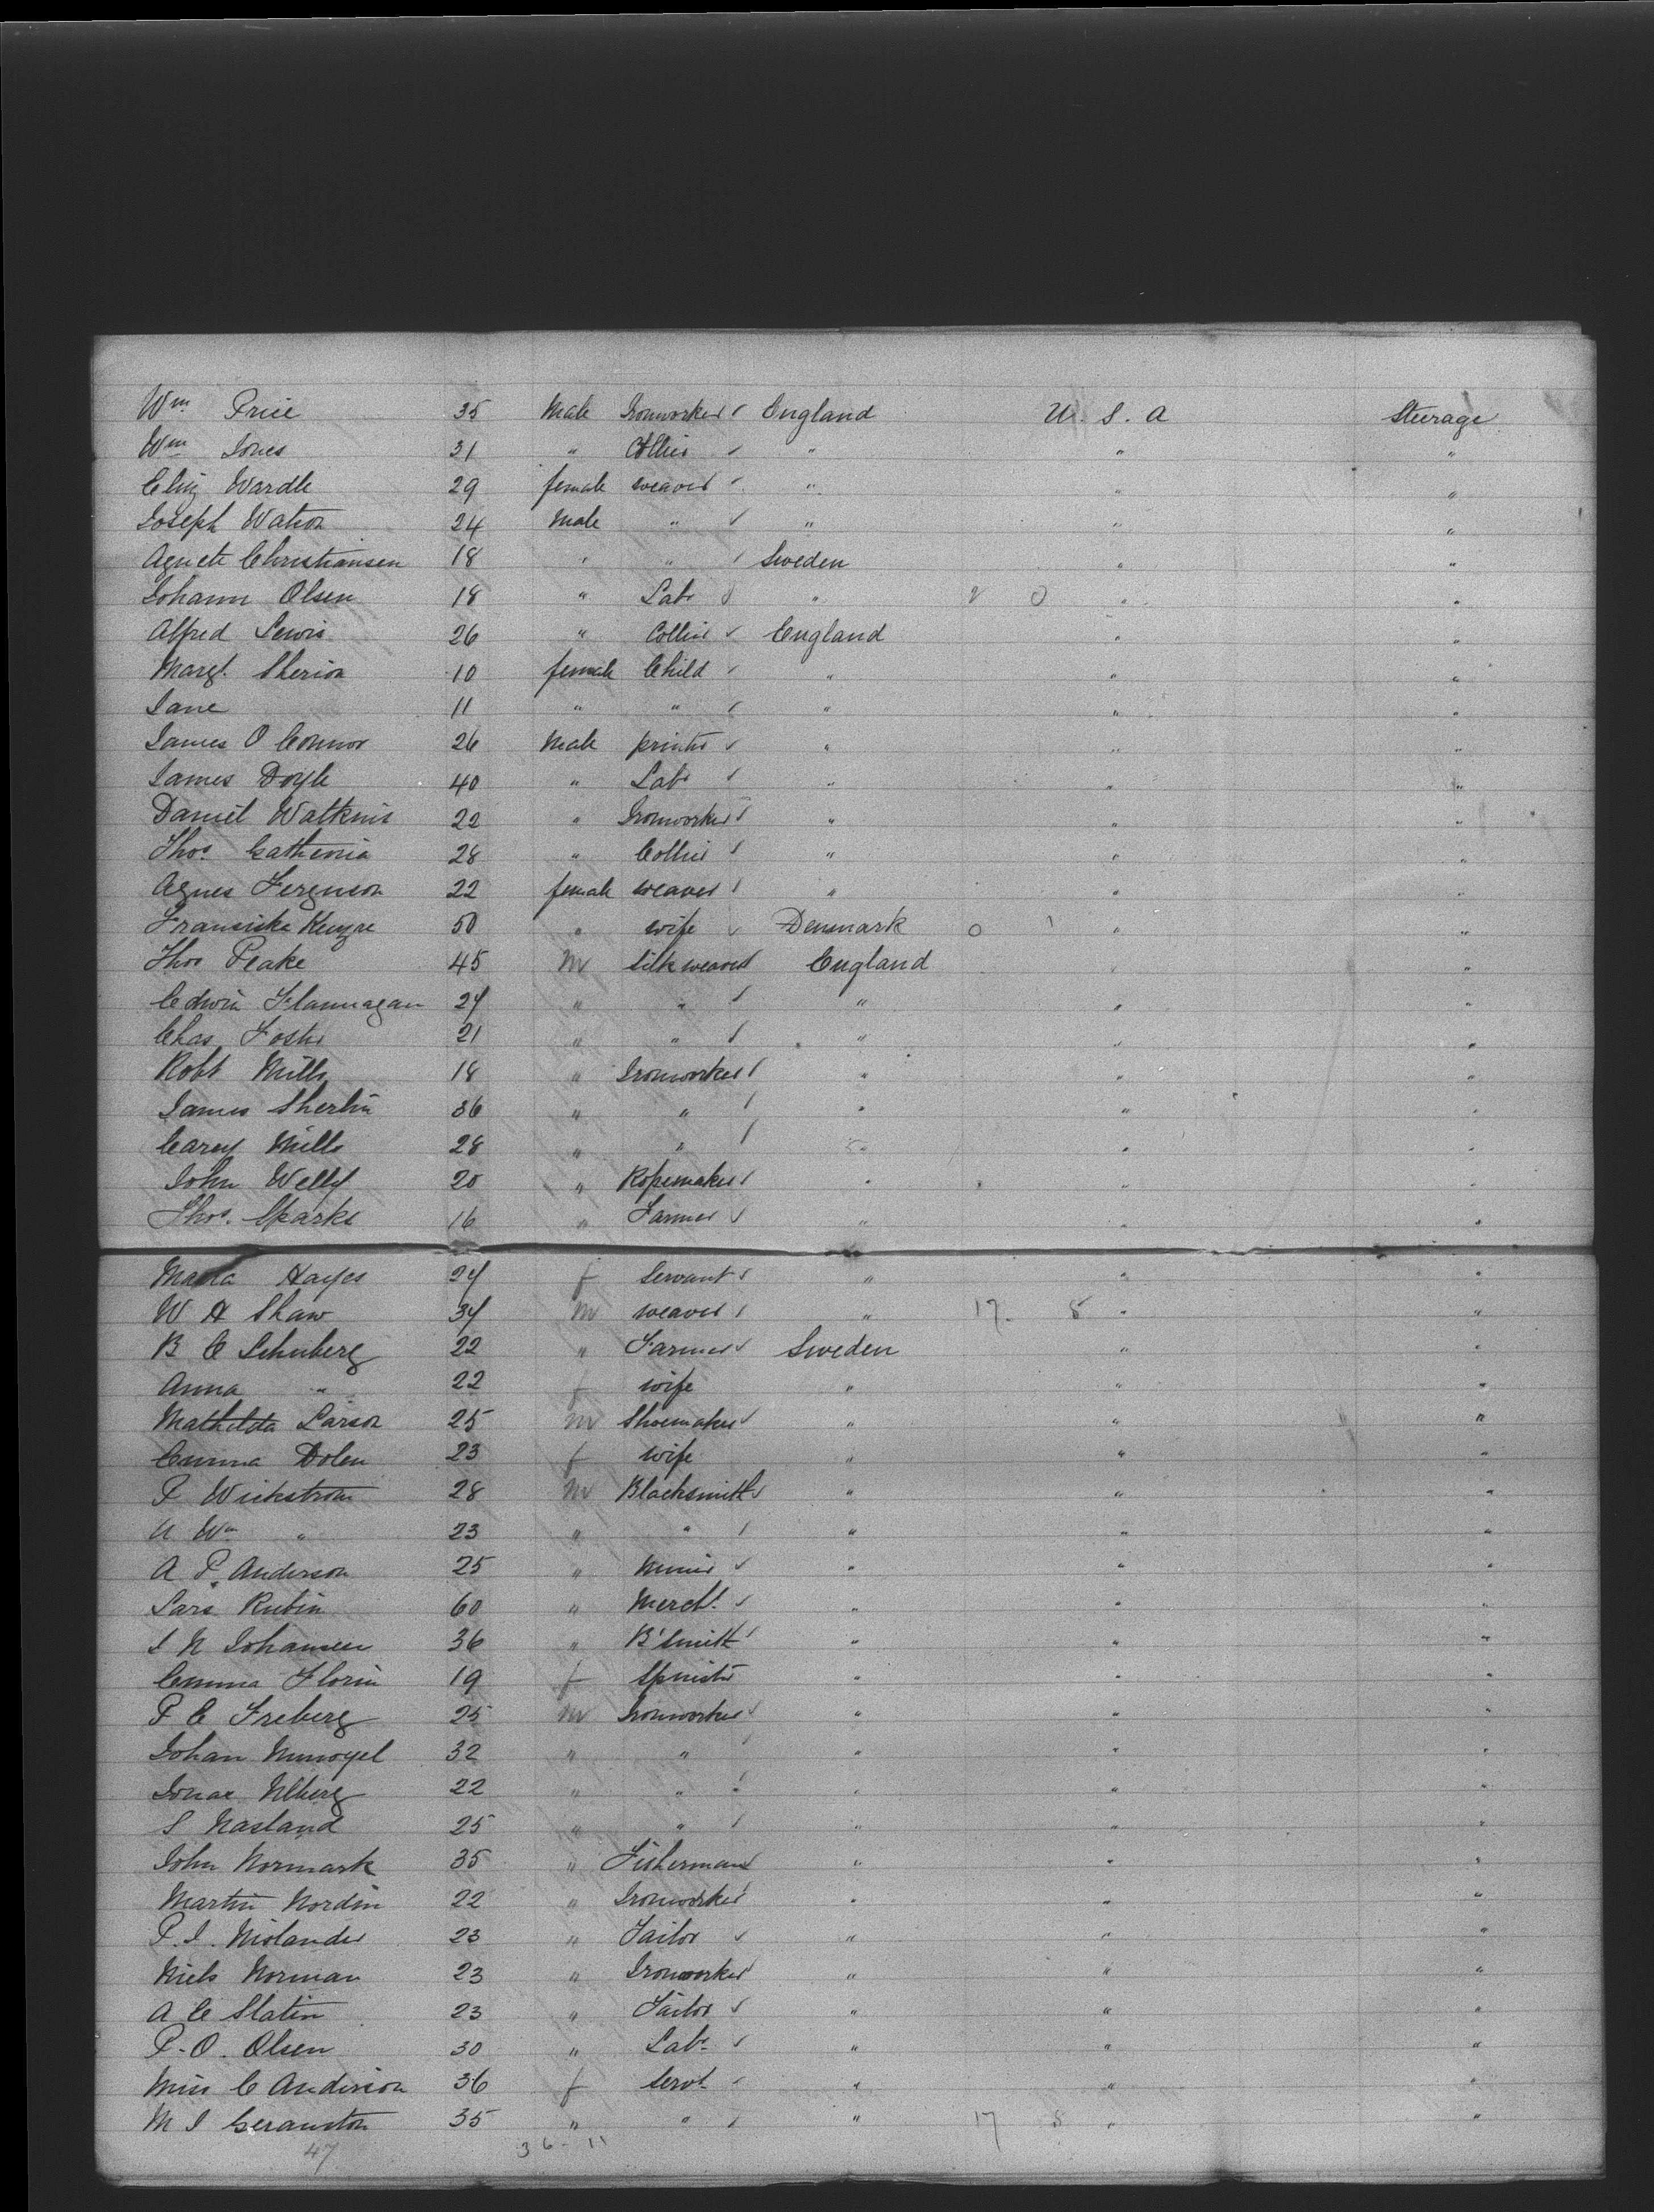 Wm Price 35 Male Ironworker England U. S. A Steerage
Wm Jones 31 " Collier " " "
Eliz Wardle 29 female weaver " " "
Joseph Watson 24 Male " " " "
Agnete Christiansen 18 " " Sweden " "
Johann Olsen 18 " Labr " 2 0 " "
Alfred Lewis 26 " Collier England " "
Margt. 10 female Child " " "
Jane 11 " " " " "
James O Connor 26 Male printer " " "
James Doyle 40 " Labr " " "
Daniel Watkins 22 " Ironworker " " "
Thos. 28 " Collier " " "
Agnes Ferguson 22 female weaver " " "
Fransiska 50 " wife Denmark 0 1 " "
Thos Peake 45 M Silkweaver England " "
Edwin Flannagan 24 " " " " "
Chas Foster 21 " " " " "
Robt Mills 18 " Ironworker " " "
James 36 " " " " "
Carey Mills 28 " " " " "
John 20 " Ropemaker " " "
Thos. Sparks 16 " Farmer " " "
Maria Hayes 24 f Servant " " "
W H Shaw 34 M weaver " 17 8 " "
B C Schuberg 22 " Farmer Sweden " "
Anna " 22 f wife " " "
Mathilda Larson 25 M Shoemaker " " "
Emma Dolen 23 f wife " " "
P Wickstrom 28 M Blacksmith " " "
Wm " 23 " " " " "
A P. Anderson 25 " Miner " " "
Lars Rubin 60 " Mercht. " " "
N Johansen 36 " B'Smith " " "
Emma Florin 19 f Spinster " " "
P C Freberg 25 M Ironworker " " "
Johan 32 " " " " "
Jonas 22 " " " " "
S Nasland 25 " " " " "
John Normark 35 " Fisherman " " "
Martin Nordin 22 " Ironworker " " "
P. J. 23 " Tailor " " "
Niels Norman 23 " Ironworker " " "
A C Slatin 23 " Tailor " " "
P. O. Olsen 30 " Labr " " "
Miss C Anderson 36 f Servt " " "
M J 35 " " " 17 8 " "
47 36 - 11